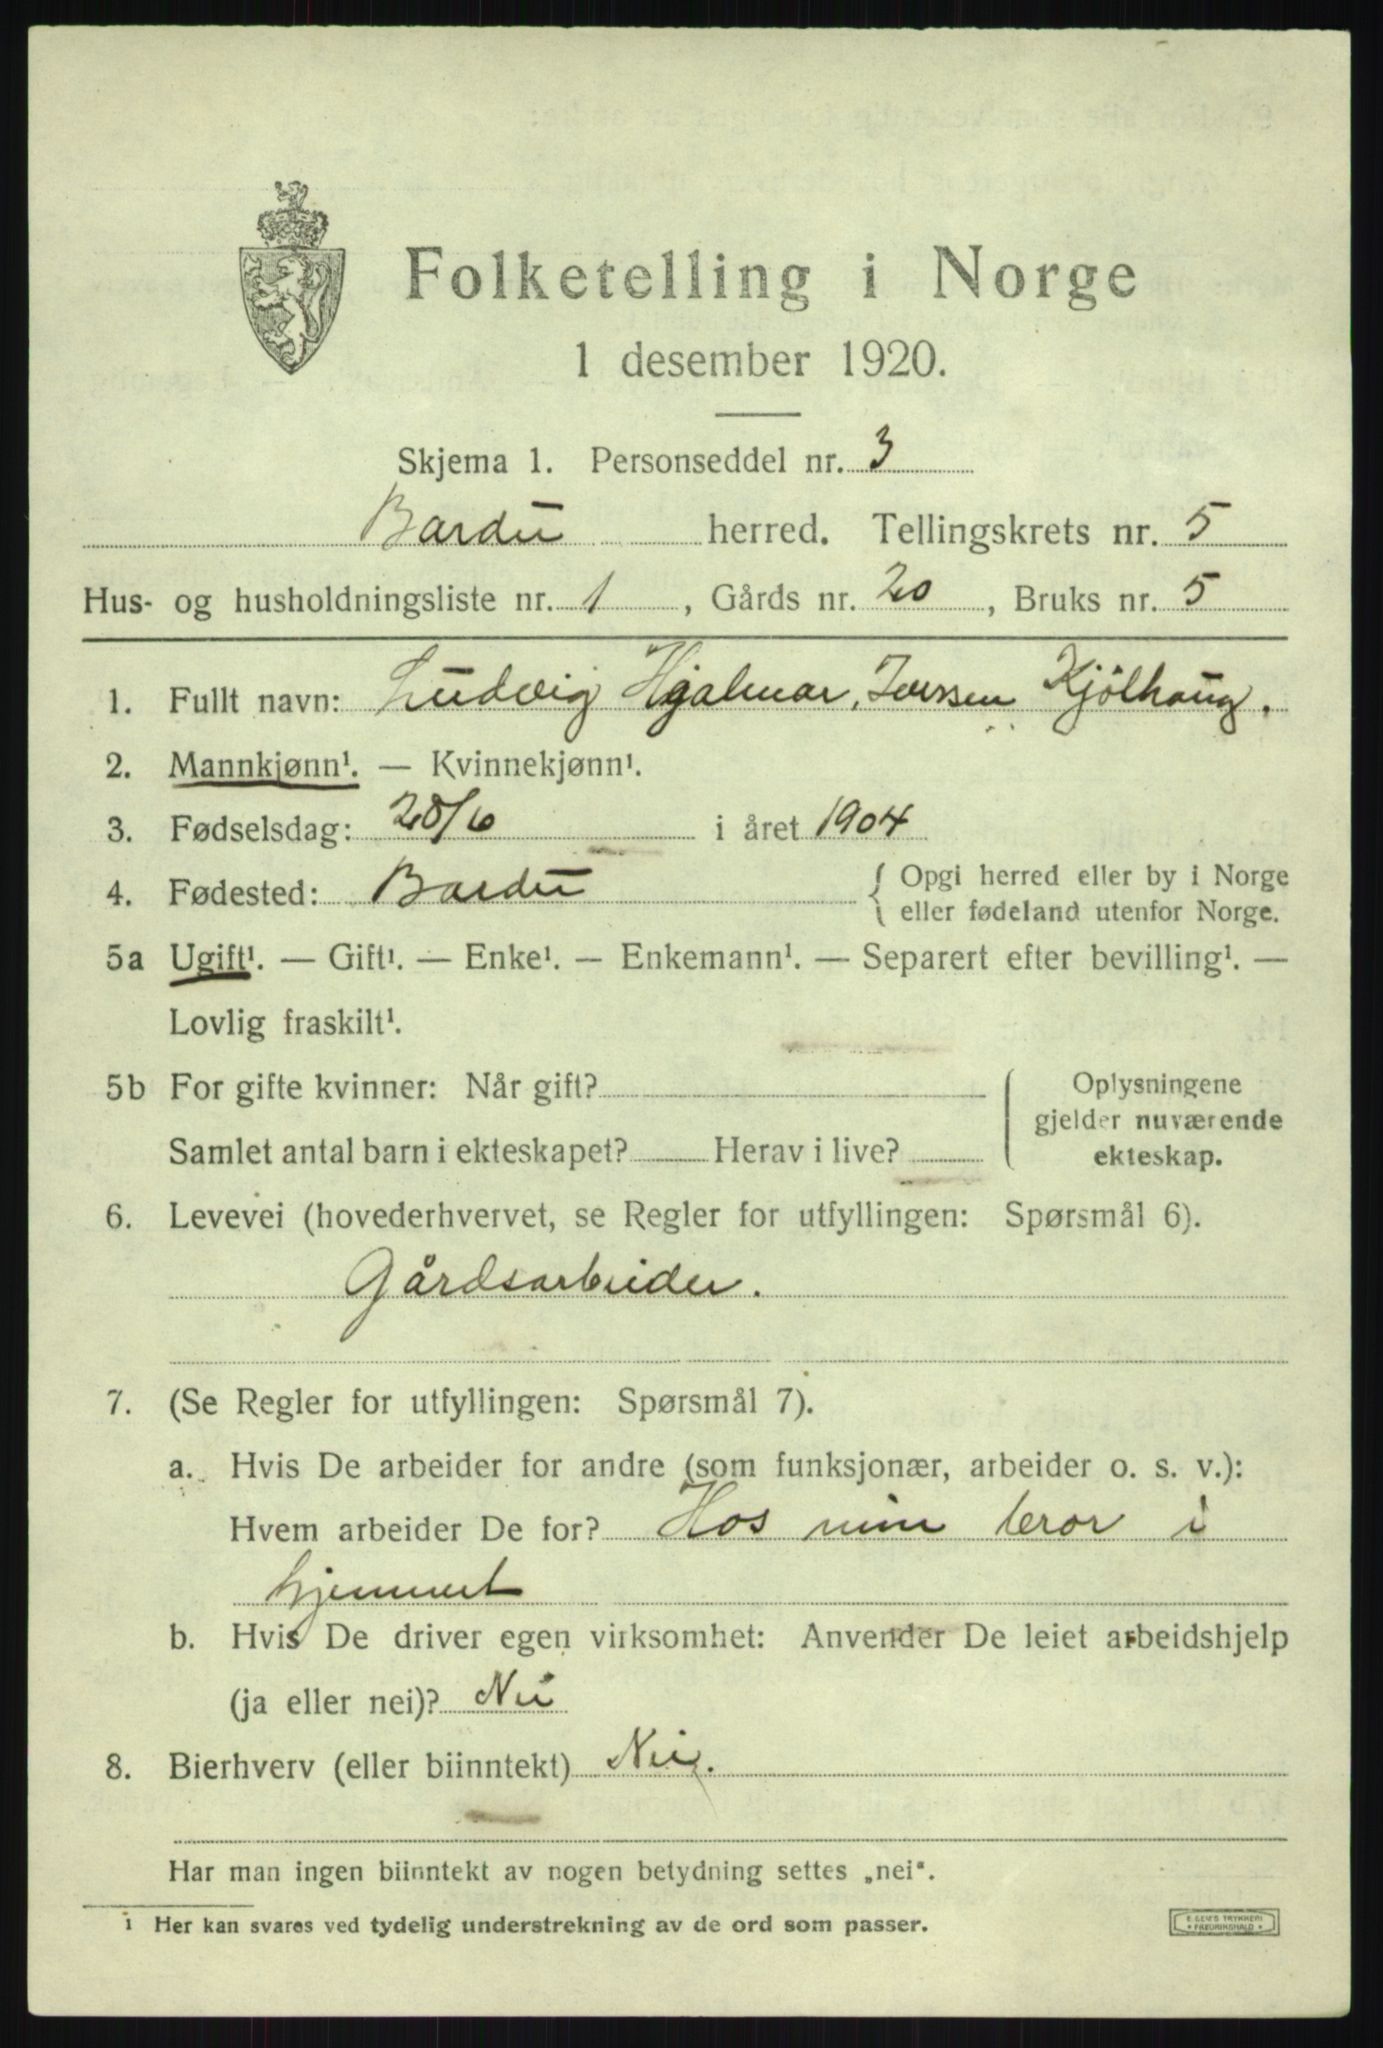 Folketelling i Norge
1 desember 1920.
Skjema 1. Personseddel nr. 3
Bardu herred. Tellingskrets nr. 5
Hus- og husholdningsliste nr. 1, Gårds nr. 20, Bruks nr. 5
1. Fullt navn: Ludvig Hjalmar, Iversen Kjölhaug.
2. Mannkjønn¹. — Kvinnekjønn¹.
3. Fødselsdag: 28/6 i året 1904
4. Fødested: Bardu { Opgi herred eller by i Norge
eller fødeland utenfor Norge.
5a Ugift¹. — Gift¹. — Enke¹. — Enkemann¹. — Separert efter bevilling¹. —
Lovlig fraskilt¹.
5b For gifte kvinner: Når gift?
Samlet antal barn i ekteskapet? Herav i live?
Oplysningene
gjelder nuværende
ekteskap.
6. Levevei (hovederhvervet, se Regler for utfyllingen: Spørsmål 6).
Gårdsarbeider.
7. (Se Regler for utfyllingen: Spørsmål 7).
a. Hvis De arbeider for andre (som funksjonær, arbeider o. s. v.):
Hvem arbeider De for? Hos min bror i
hjemmet
b. Hvis De driver egen virksomhet: Anvender De leiet arbeidshjelp
(ja eller nei)? Nei
8. Bierhverv (eller biinntekt) Nei.
Har man ingen biinntekt av nogen betydning settes „nei“.
1 Her kan svares ved tydelig understrekning av de ord som passer.
TRYKKERI
FREDRIKSHALD